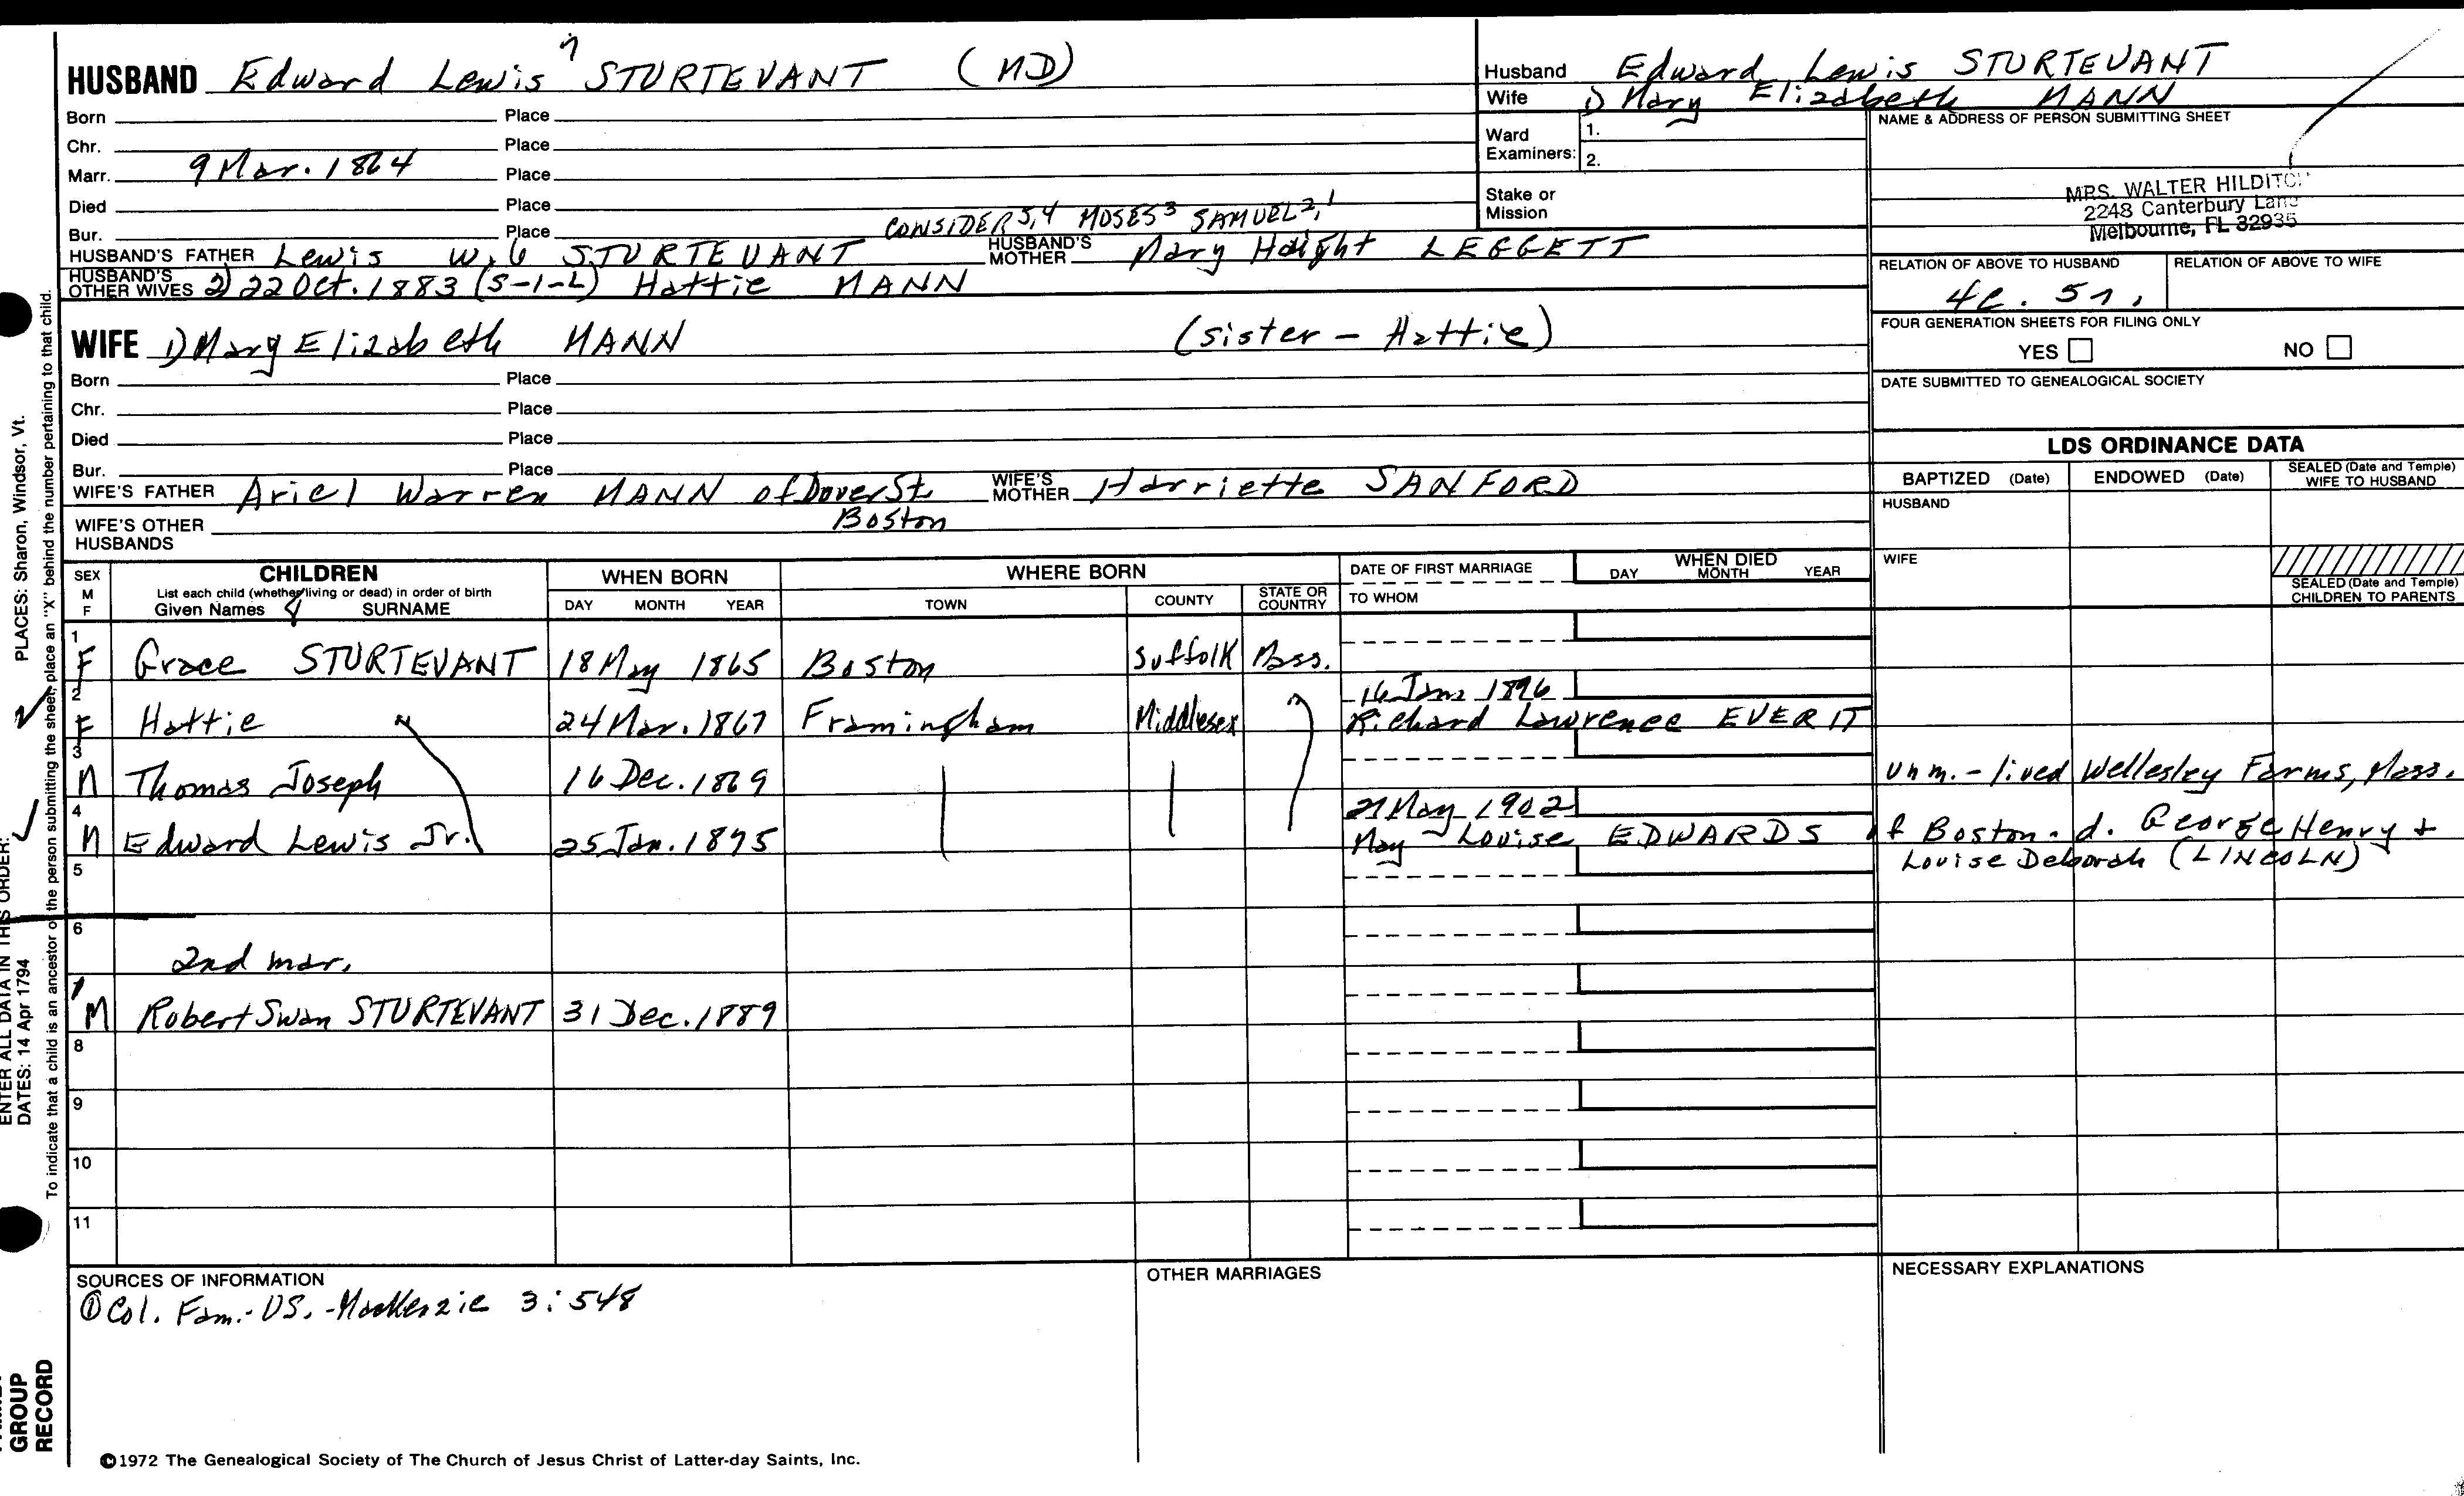 HUSBAND Edward Lewis 7 STURTEVANT (MD)
Born Place
Chr. Place
Marr. 9 Mar. 1864 Place
Died Place
Bur. Place
CONSIDER 5,4 MOSES 3 SAMUEL 2,1
HUSBAND'S FATHER Lewis W. 6 STURTEVANT HUSBAND'S MOTHER Mary Haight LEGGETT
HUSBAND'S OTHER WIVES 2) 22 Oct. 1883 (S-1-L) Hattie MANN
WIFE 1) Mary Elizabeth MANN (sister - Hattie)
Born Place
Chr. Place
Died Place
Bur. Place
WIFE'S FATHER Ariel Warren MANN of Dover St. Boston WIFE'S MOTHER Harriette SANFORD
WIFE'S OTHER HUSBANDS
Husband Edward Lewis STURTEVANT
Wife 1) Mary Elizabeth MANN
Ward Examiners: 1.
2.
Stake or Mission
NAME & ADDRESS OF PERSON SUBMITTING SHEET
MRS. WALTER HILDITCH
2248 Canterbury Lane
Melbourne, FL 32935
RELATION OF ABOVE TO HUSBAND RELATION OF ABOVE TO WIFE
4c. 5r.
FOUR GENERATION SHEETS FOR FILING ONLY
YES NO
DATE SUBMITTED TO GENEALOGICAL SOCIETY
LDS ORDINANCE DATA
BAPTIZED (Date) ENDOWED (Date) SEALED (Date and Temple) WIFE TO HUSBAND
HUSBAND
WIFE
SEALED (Date and Temple) CHILDREN TO PARENTS
SEX M F
CHILDREN
List each child (whether living or dead) in order of birth
Given Names SURNAME
WHEN BORN
DAY MONTH YEAR
WHERE BORN
TOWN COUNTY STATE OR COUNTRY
DATE OF FIRST MARRIAGE
TO WHOM
WHEN DIED
DAY MONTH YEAR
1 F Grace STURTEVANT 18 May 1865 Boston Suffolk Mass.
2 F Hattie 24 Mar. 1867 Framingham Middlesex 16 Jan. 1896 Richard Lawrence EVERIT
3 M Thomas Joseph 16 Dec. 1869 unm. - lived Wellesley Farms, Mass.
4 M Edward Lewis Jr. 25 Jan. 1875 21 May 1902 May Louise EDWARDS of Boston - d. George Henry +
Louise Deborah (LINCOLN)
5
6
2nd mar.
1 M Robert Swan STURTEVANT 31 Dec. 1889
8
9
10
11
SOURCES OF INFORMATION
① Col. Fam. - US. - MacKenzie 3: 548
OTHER MARRIAGES
NECESSARY EXPLANATIONS
©1972 The Genealogical Society of The Church of Jesus Christ of Latter-day Saints, Inc.
PLACES: Sharon, Windsor, Vt.
ENTER ALL DATA IN THIS ORDER:
DATES: 14 Apr 1794
To indicate that a child is an ancestor of the person submitting the sheet, place an "X" behind the number pertaining to that child.
GROUP
RECORD